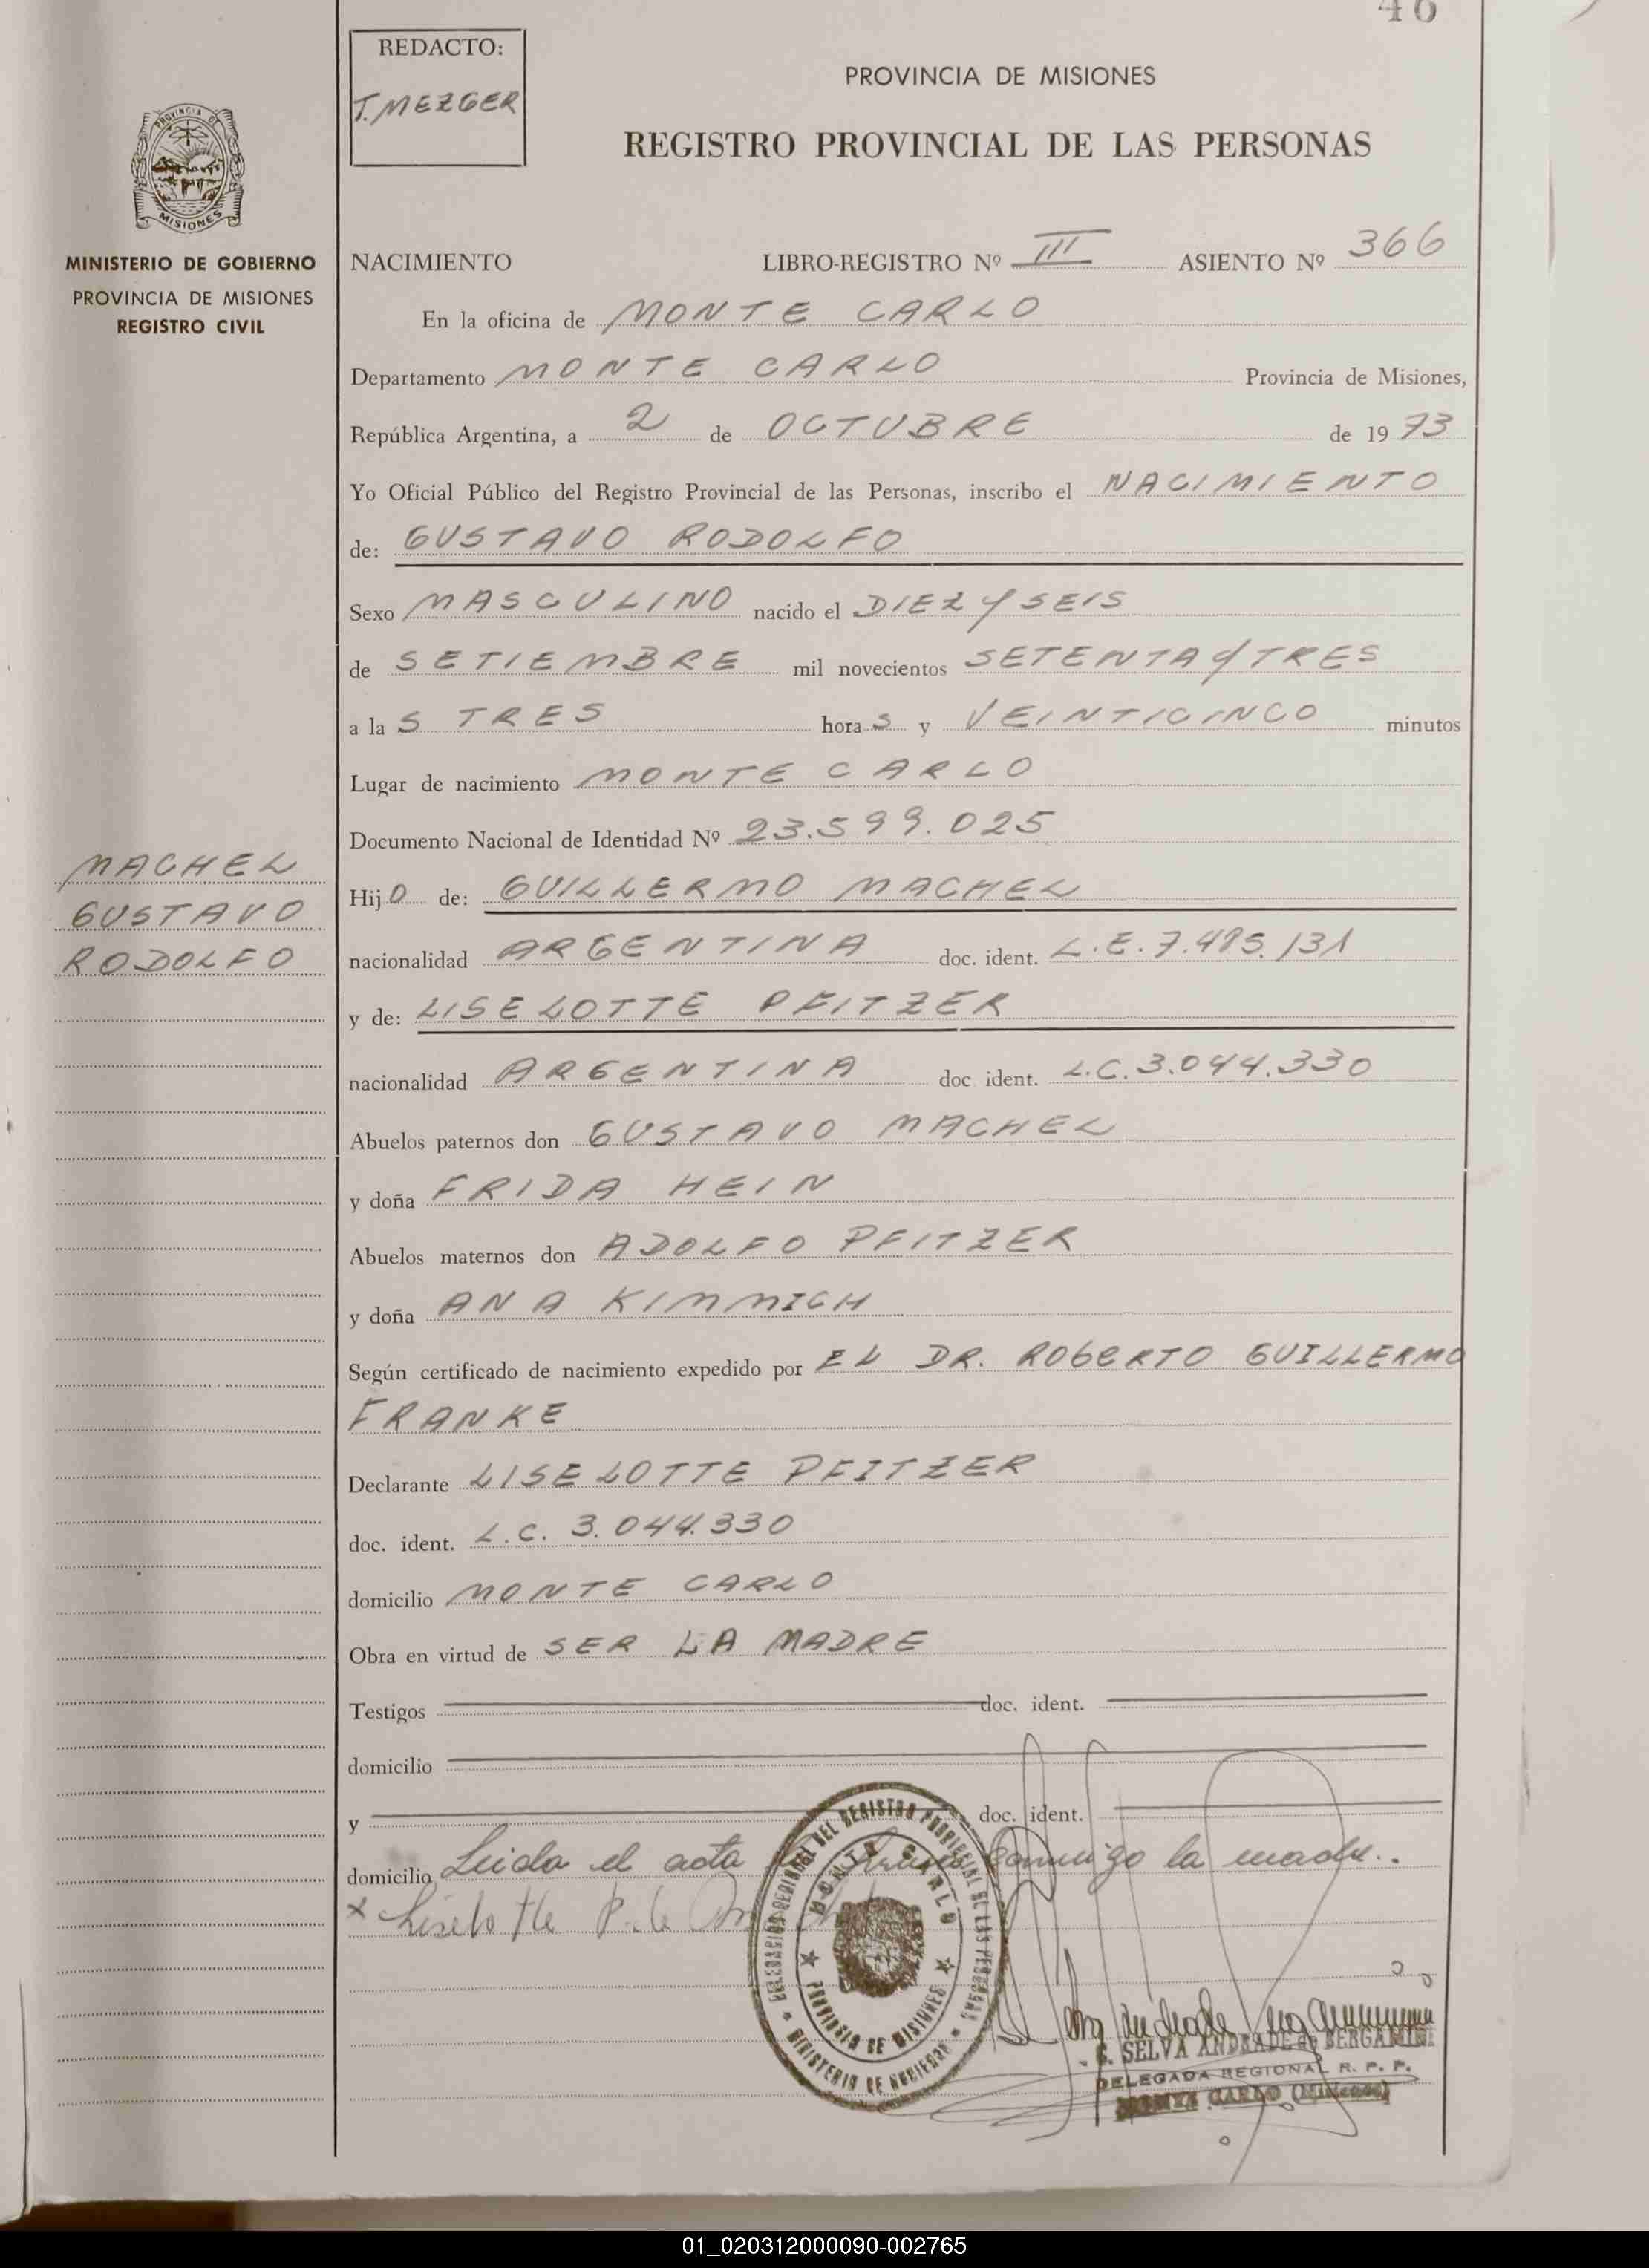 46
REDACTO:
T. MEZGER
PROVINCIA DE MISIONES
REGISTRO PROVINCIAL DE LAS PERSONAS
PROVINCIA DE
MISIONES
MINISTERIO DE GOBIERNO
PROVINCIA DE MISIONES
REGISTRO CIVIL
NACIMIENTO LIBRO-REGISTRO Nº III ASIENTO Nº 366
En la oficina de MONTE CARLO
Departamento MONTE CARLO Provincia de Misiones,
República Argentina, a 2 de OCTUBRE de 1973
Yo Oficial Público del Registro Provincial de las Personas, inscribo el NACIMIENTO
de: GUSTAVO RODOLFO
Sexo MASCULINO nacido el DIEZ Y SEIS
de SETIEMBRE mil novecientos SETENTA Y TRES
a las TRES horas y VEINTICINCO minutos
Lugar de nacimiento MONTE CARLO
Documento Nacional de Identidad Nº 23.599.025
MACHEL
GUSTAVO
RODOLFO
Hijo de: GUILLERMO MACHEL
nacionalidad ARGENTINA doc. ident. L.E. 7.485.131
y de: LISELOTTE PFITZER
nacionalidad ARGENTINA doc ident. L.C. 3.044.330
Abuelos paternos don GUSTAVO MACHEL
y doña FRIDA HEIN
Abuelos maternos don ADOLFO PFITZER
y doña ANA KIMMICH
Según certificado de nacimiento expedido por EL DR. ROBERTO GUILLERMO
FRANKE
Declarante LISELOTTE PFITZER
doc. ident. L.C. 3.044.330
domicilio MONTE CARLO
Obra en virtud de SER LA MADRE
Testigos doc. ident.
domicilio
y doc. ident.
domicilio Leida el acta la firma conmigo la madre..
x Liselotte P. de
DELEGACION REGIONAL DEL REGISTRO PROVINCIAL DE LAS PERSONAS
MONTE CARLO
PROVINCIA DE MISIONES
MINISTERIO DE GOBIERNO
G. SELVA ANDRADE de BERGAMINI
DELEGADA REGIONAL R. P. P.
MONTE CARLO (Misiones)
01_020312000090-002765